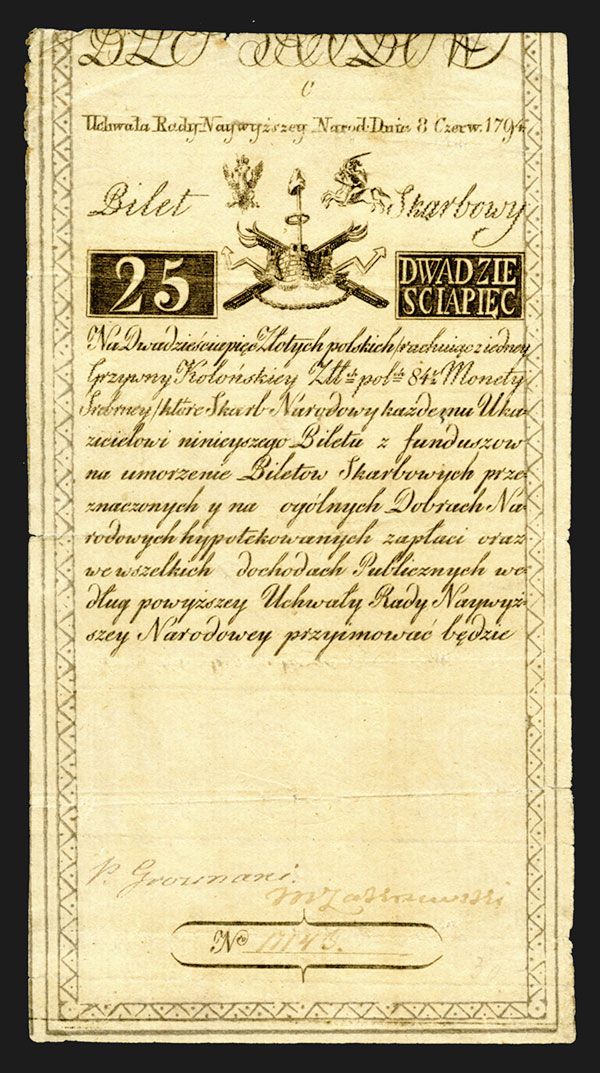 C
Uchwała Rady Naywyższey Narod. Dnia 8 Czerw. 1794.
Bilet Skarbowy
25 DWADZIE
SCIAPIĘC
Na Dwadzieściapięc Złotych polskich /rachuiąc z iedney
Grzywny Kolońskiey Złł. pol. 84½ Monety
Srebrney/ które Skarb Narodowy każdemu Uka-
zicielowi ninieyszego Biletu z funduszow
na umorzenie Biletow Skarbowych prze-
znaczonych y na ogólnych Dobrach Na-
rodowych hypotekowanych zapłaci oraz
we wszelkich dochodach Publicznych we-
dług powyższey Uchwały Rady Naywyż-
szey Narodowey przyimować będzie
P. Grosmani.
M Zakrzewski
No